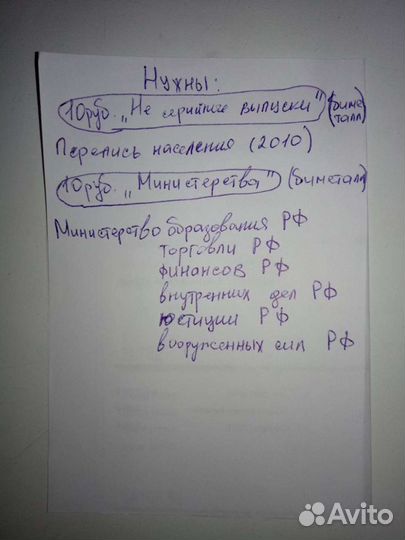 Нужны:
10руб. „Не серийные выпуски" (биметалл)
Перепись населения (2010)
10руб. „Министерства" (биметалл)
Министерство образования РФ
торговли РФ
финансов РФ
внутренних дел РФ
юстиции РФ
вооруженных сил РФ
Avito